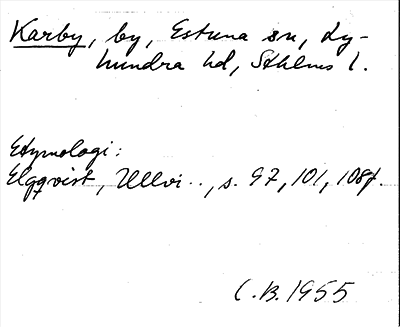 Karby, by, Estuna sn, Ly-
hundra hd, Sthlms l.
Etymologi:
Elgqvist, Ullvi.., s. 97, 101, 108f.
C.B. 1955